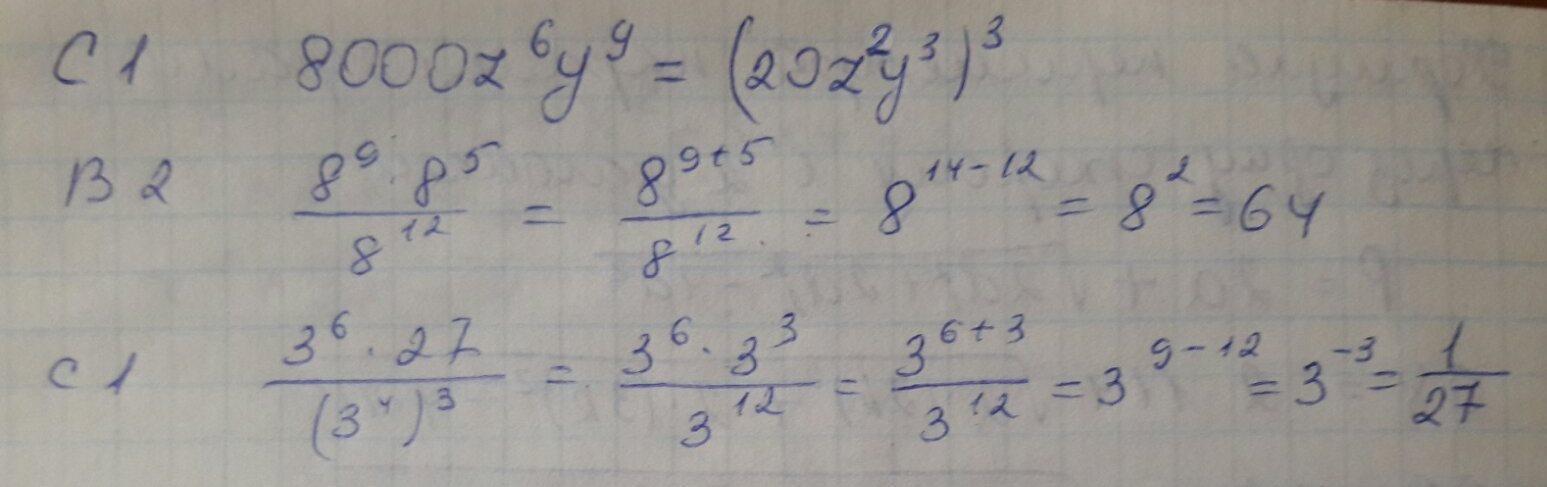 C 1 8000z⁶y⁹ = (20z²y³)³
B 2 8⁹·8⁵/8¹² = 8⁹⁺⁵/8¹² = 8¹⁴⁻¹² = 8² = 64
C 1 3⁶·27/(3⁴)³ = 3⁶·3³/3¹² = 3⁶⁺³/3¹² = 3⁹⁻¹² = 3⁻³ = 1/27